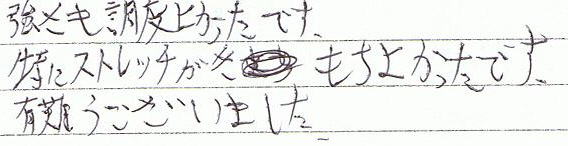 強さも調度よかったです。
特にストレッチがきもちよかったです。
有難うございました